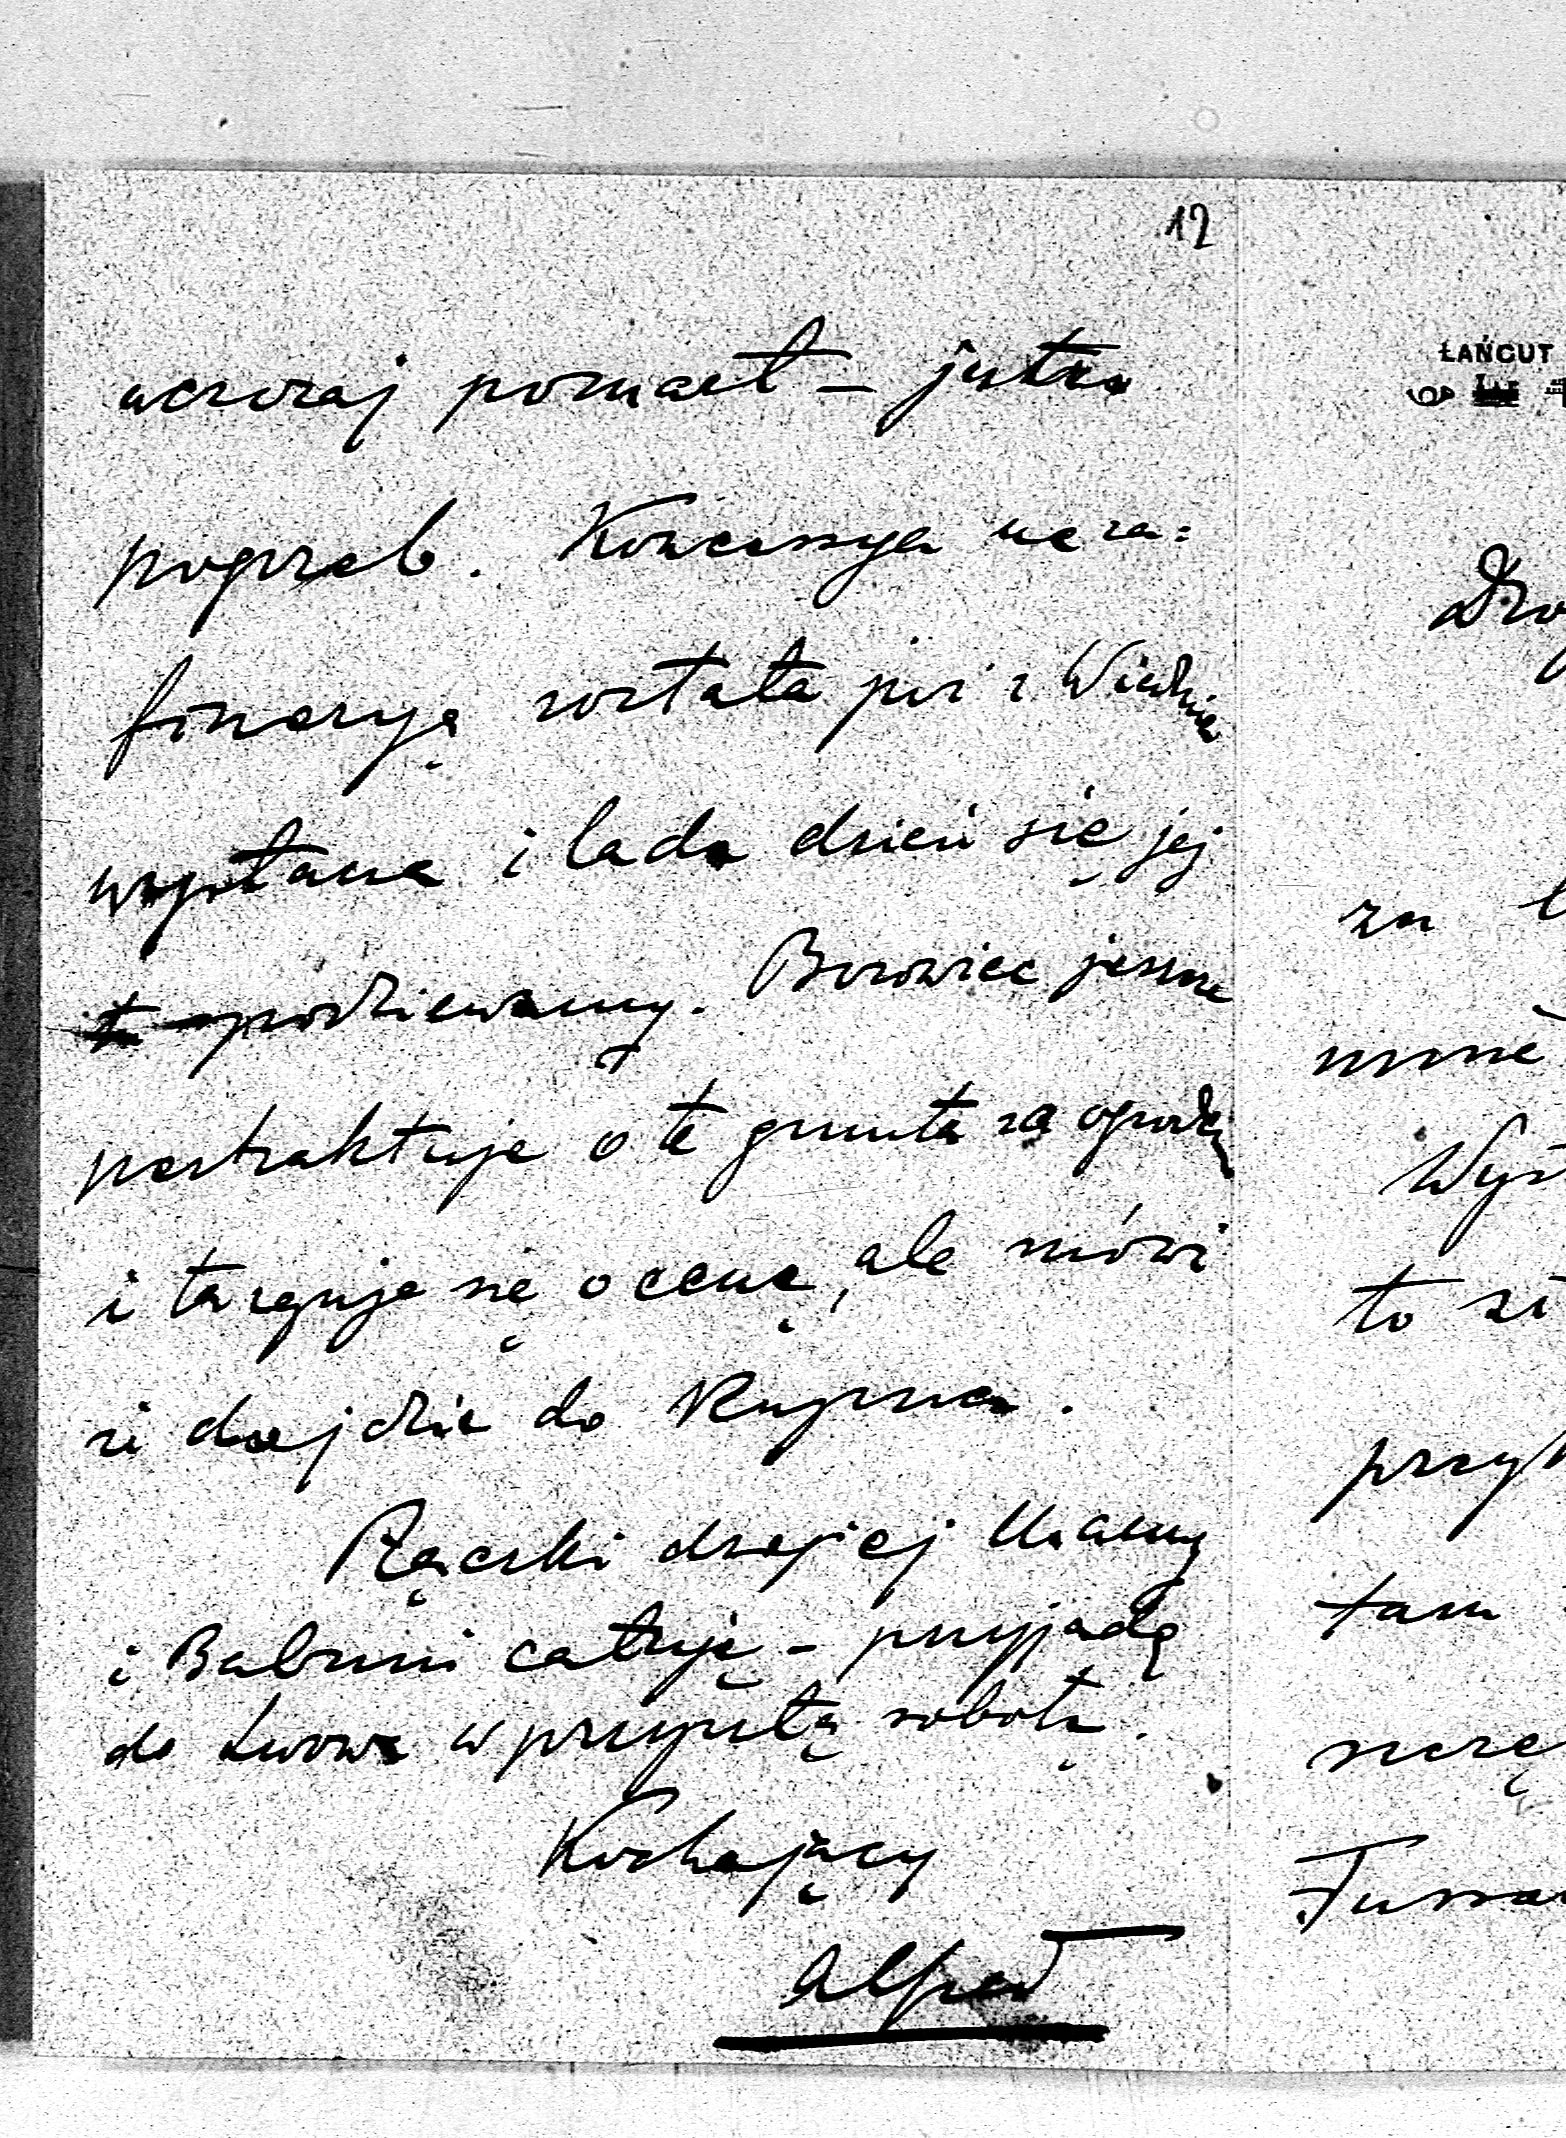 12
wczoraj pomarł – jutro
pogrzeb. Koncessya na ra=
fineryę została już z Wiednia
wysłana i lada dzień się jej
spodziewamy. Borowiec jeszcze
pertraktuje o te grunta za ogrodem
i targuje się o cenę, ale mówi
że dojdzie do kupna.
Rączki drogiej Mamy
i Babuni całuję – przyjadę
do Lwowa w przyszłą sobotę.
Kochający
Alfred
ŁAŃCUT
Dro
za
mnie
Wys
to
przy
tam
Tussa